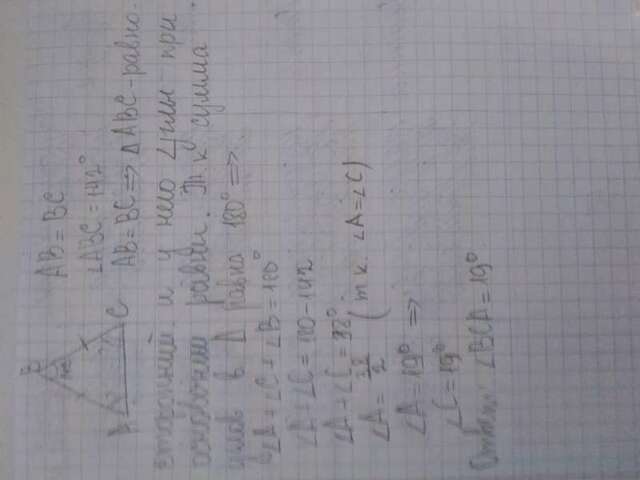 B
A
C
AB = BC
∠ABC = 142°
AB = BC => Δ ABC - равно-
сторонний. и у него углы при
основании равны. Т к сумма
углов в Δ равна 180° =>
∠A + ∠C + ∠B = 180°
∠A + ∠C = 180 - 142
∠A + ∠C = 38°
∠A = 38/2 (т к. ∠A = ∠C)
∠A = 19° =>
∠C = 19°
Ответ: ∠BCA = 19°